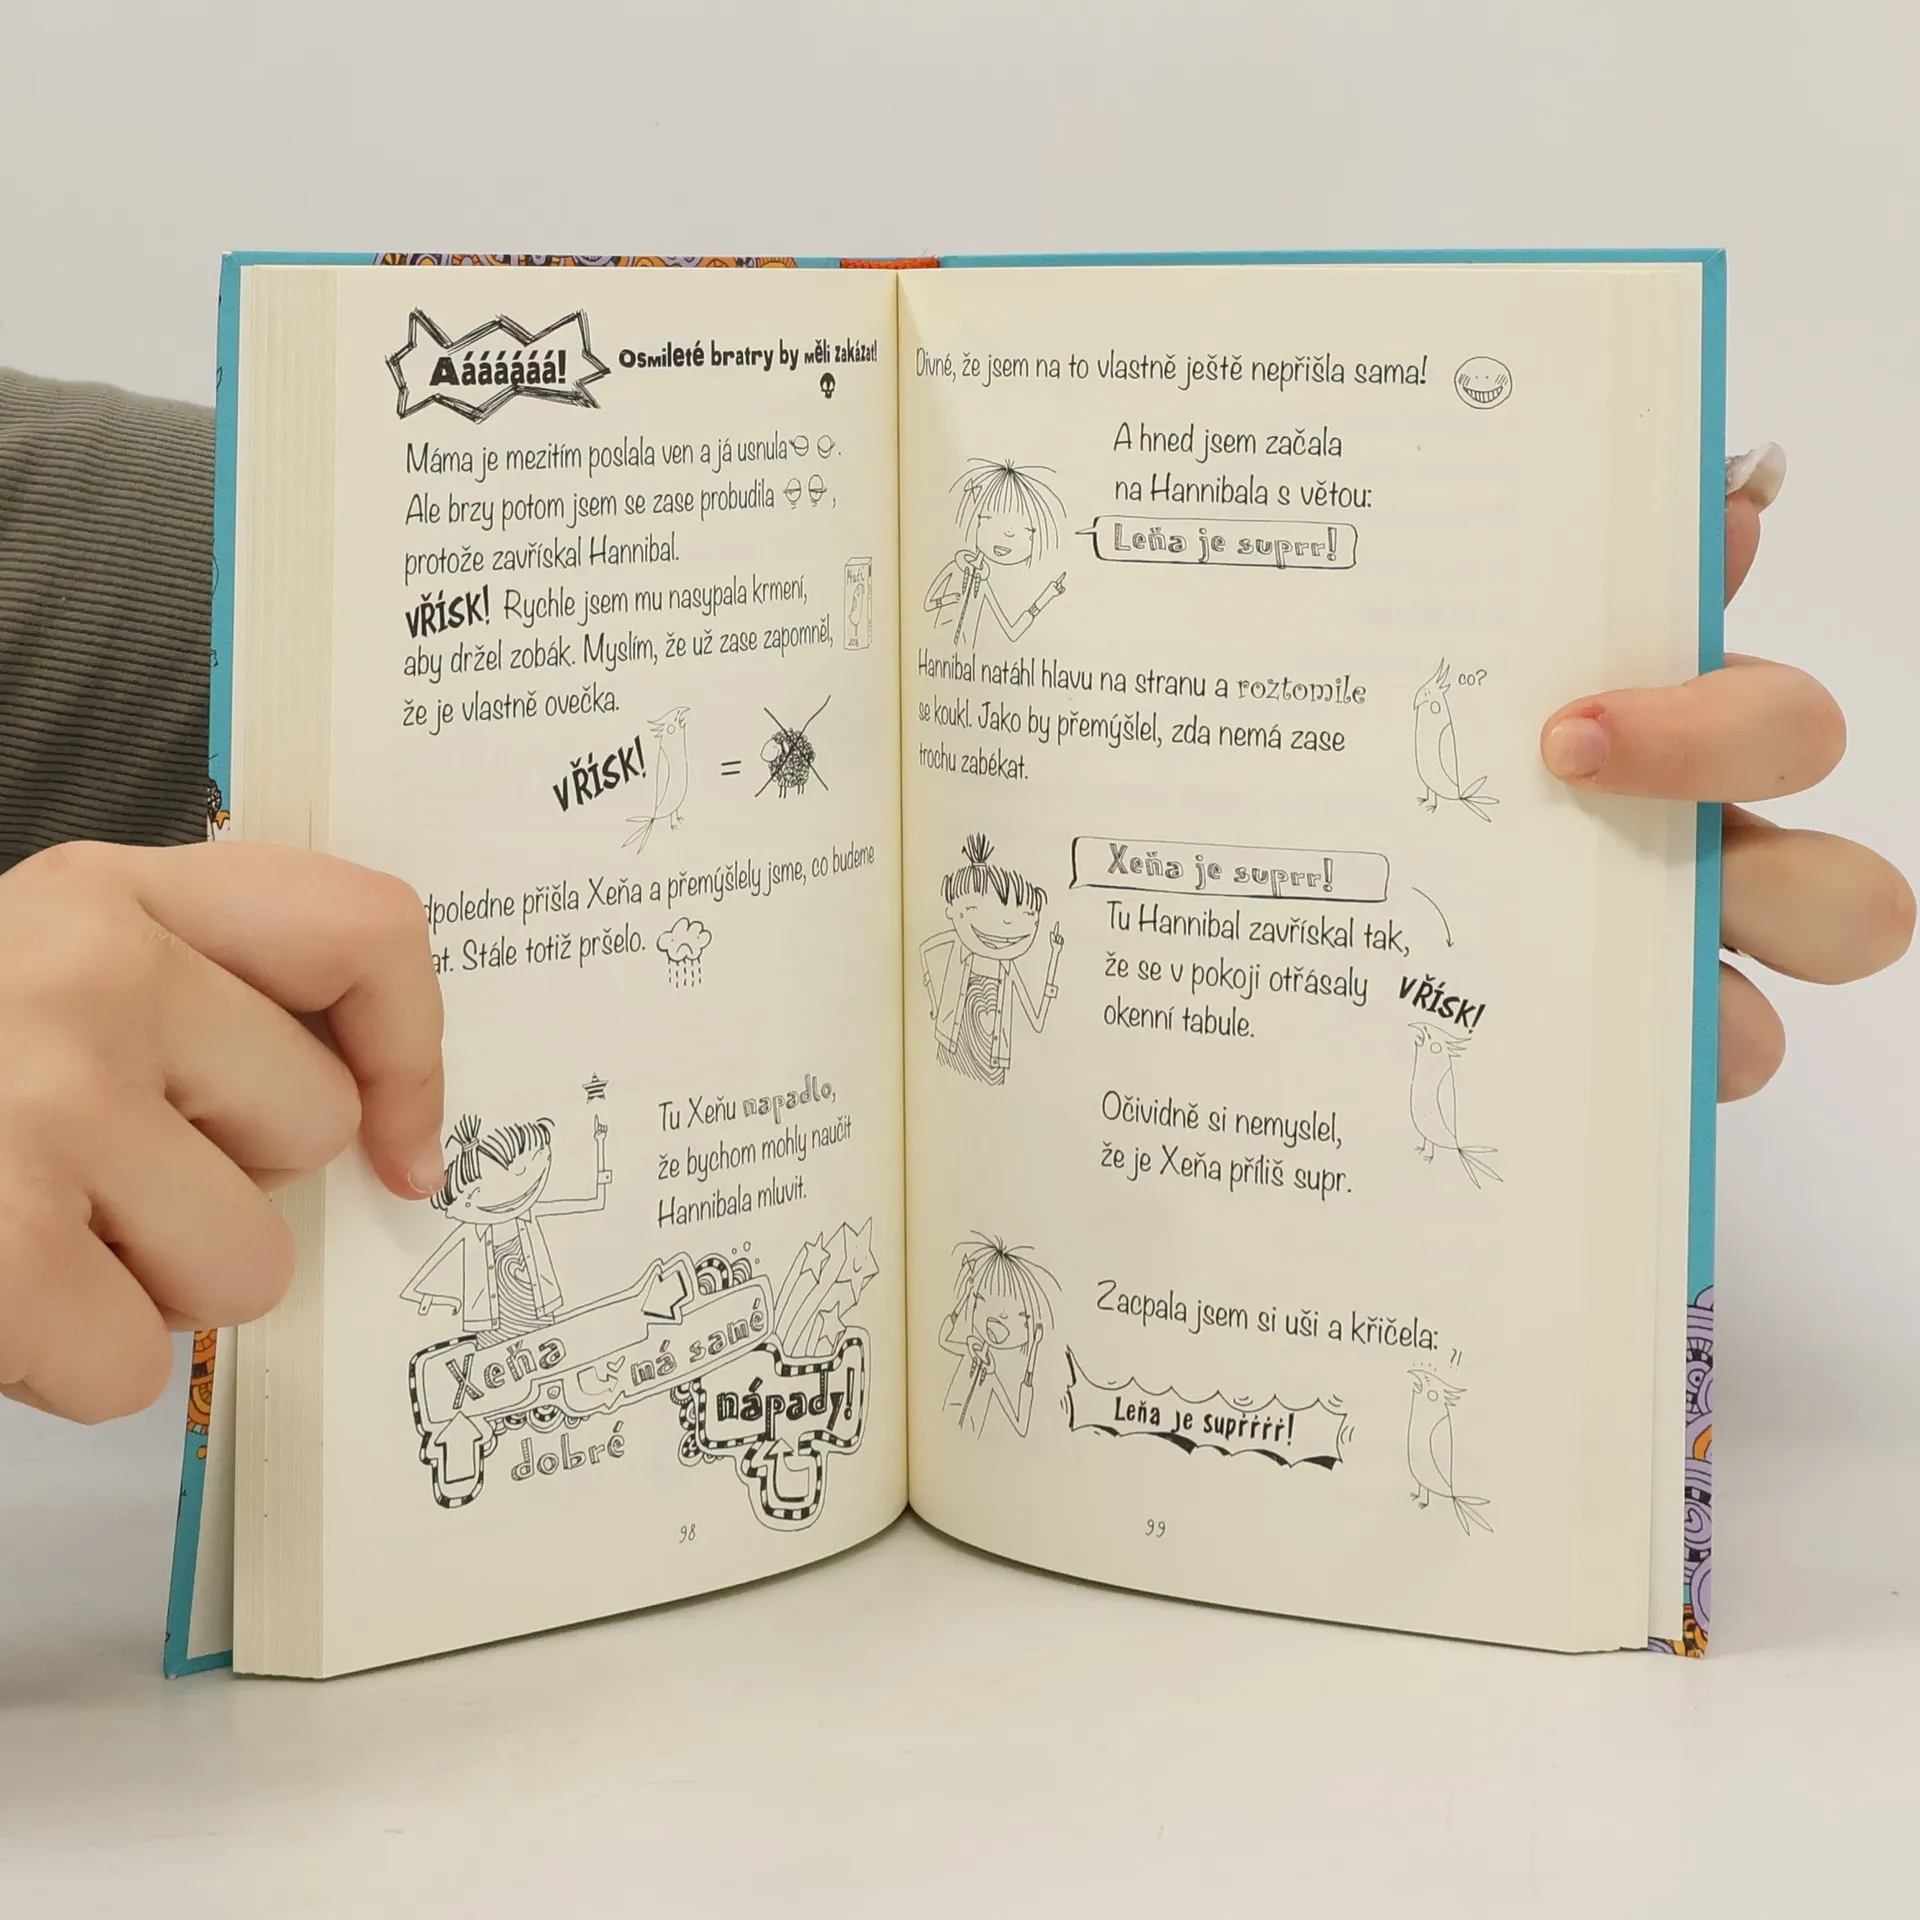 Aáááááá!
Osmileté bratry by měli zakázat!
Máma je mezitím poslala ven a já usnula.
Ale brzy potom jsem se zase probudila,
protože zavřískal Hannibal.
VŘÍSK! Rychle jsem mu nasypala krmení,
aby držel zobák. Myslím, že už zase zapomněl,
že je vlastně ovečka.
VŘÍSK! =
přišla Xeňa a přemýšlely jsme, co budeme
Stále totiž pršelo.
Tu Xeňu napadlo,
že bychom mohly naučit
Hannibala mluvit.
Xeňa má samé
dobré
nápady!
98
Divné, že jsem na to vlastně ještě nepřišla sama!
A hned jsem začala
na Hannibala s větou:
Leňa je suprr!
Hannibal natáhl hlavu na stranu a roztomile
se koukl. Jako by přemýšlel, zda nemá zase
trochu zabékat.
co?
Xeňa je suprr!
Tu Hannibal zavřískal tak,
že se v pokoji otřásaly
okenní tabule.
VŘÍSK!
Očividně si nemyslel,
že je Xeňa příliš supr.
Zacpala jsem si uši a křičela:
?!
Leňa je supřřřř!
99